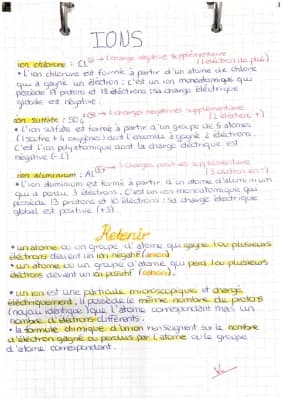 IONS
ion chlorure : CL⊖ → 1 charge négative supplémentaire
(1 électron de plus)
• L'ion chlorure est formé à partir d'un atome de chlore
qui a gagné un électron : c'est un ion monoatomique qui
possède 17 protons et 18 électrons : sa charge électrique
globale est négative.
ion sulfate : SO4 2⊖ → 2 charges négatives supplémentaire
(2 électrons +)
• L'ion sulfate est formé à partir d'un groupe de 5 atomes
(1 soufre + 4 oxygènes) dont l'ensemble a gagné 2 électrons.
C'est l'ion polyatomique dont la charge électrique est
négative (-2)
ion aluminium : AL 3+ → 3 charges positives supplémentaire
(3 électron en -)
• L'ion aluminium est formé à partir d'un atome d'aluminium
qui a perdu 3 électrons. C'est un ion monoatomique qui
possède 13 protons et 10 électrons : sa charge électrique
global est positive (+3).
Retenir
• un atome ou un groupe d'atome qui gagne 1 ou plusieurs
électrons devient un ion négatif (anion)
• un atome ou un groupe d'atome qui perd 1 ou plusieurs
électrons devient un ion positif (cation).
• un ion est une particule microscopique et chargé
électriquement, il possède le même nombre de protons
(noyau identique) que l'atome correspondant mais un
nombre d'électrons différents.
• la formule chimique d'un ion renseignent sur le nombre
d'électron gagné ou perdus par l'atome ou le groupe
d'atome correspondant.